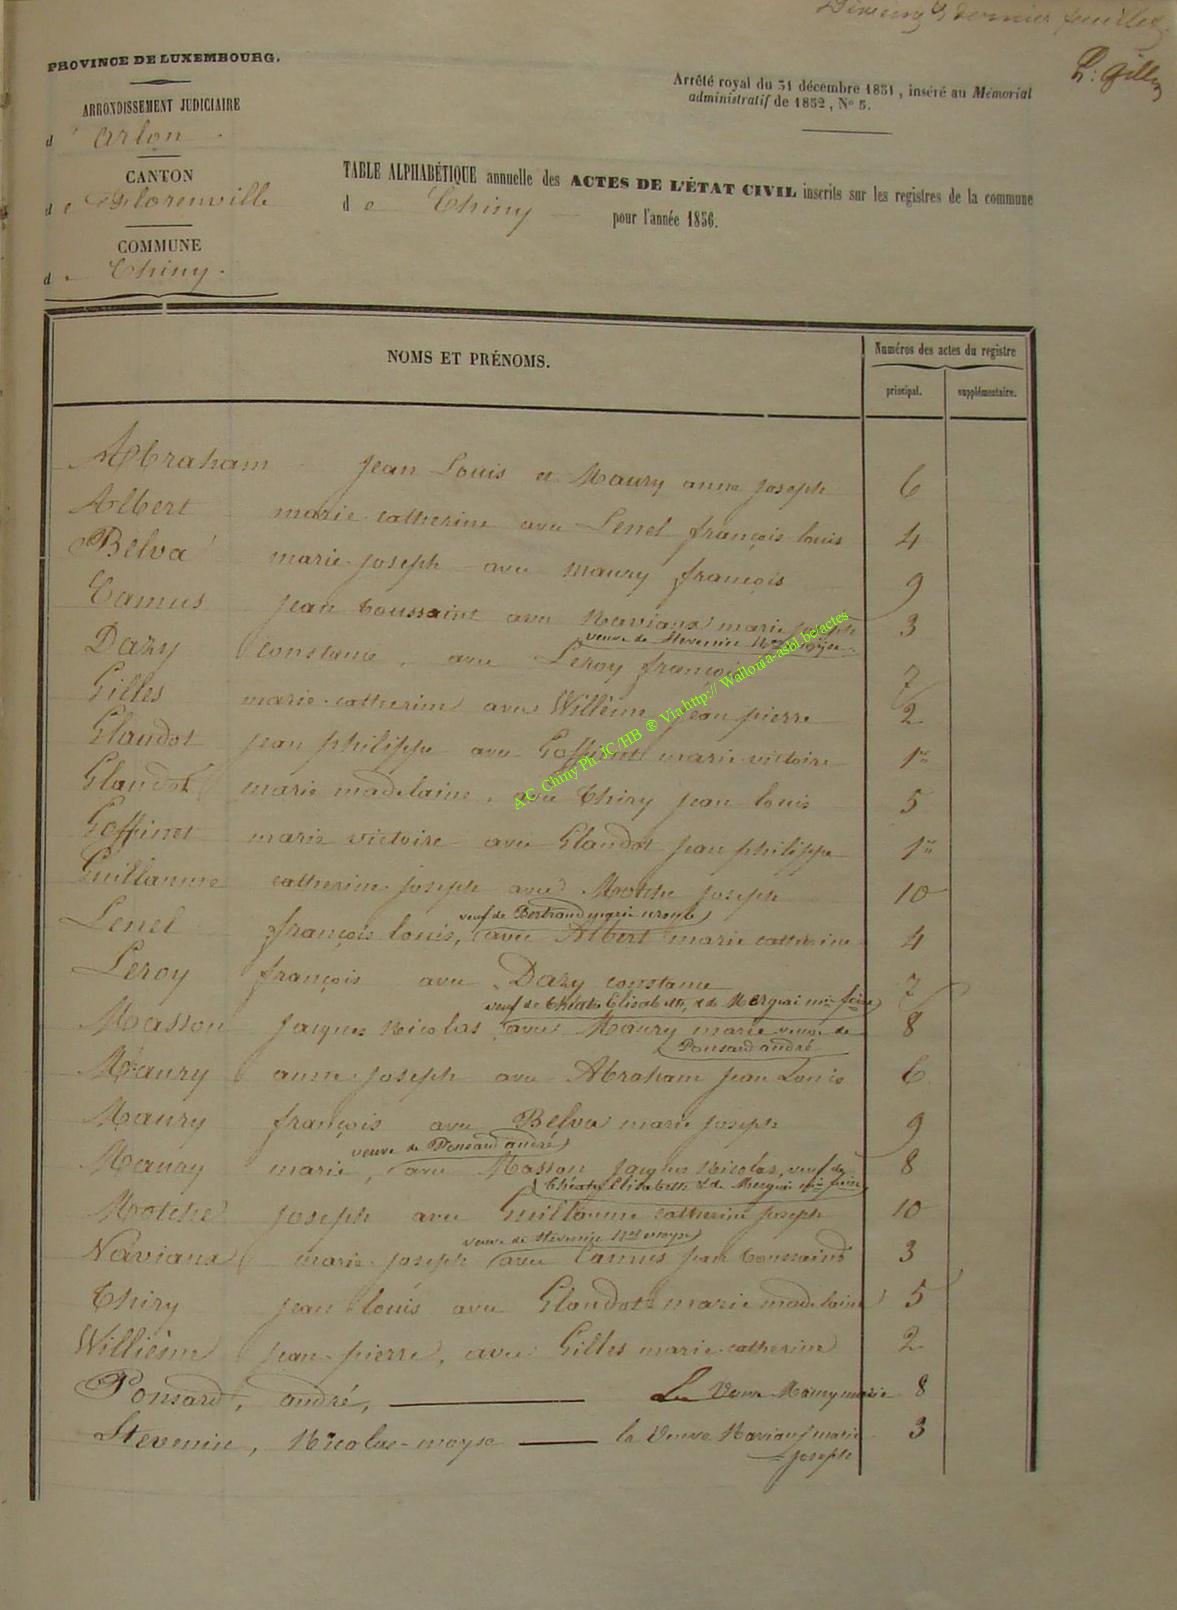 dernier feuillet
PROVINCE DE LUXEMBOURG.
Arrêté royal du 31 décembre 1851, inséré au Mémorial
administratif de 1852, Nº 5.
ARRONDISSEMENT JUDICIAIRE
d'Arlon
CANTON
de Florenville
COMMUNE
de Chiny.
TABLE ALPHABÉTIQUE annuelle des ACTES DE L'ÉTAT CIVIL inscrits sur les registres de la commune
de Chiny pour l'année 1856.
NOMS ET PRÉNOMS. Numéros des actes du registre
principal. supplémentaire.
Abraham Jean Louis et Maury anne joseph 6
Albert marie catherine avec Lenel françois louis 4
Belva marie joseph avec Maury françois 9
Camus jean toussaint avec Naviaux marie joseph 3
veuve de Stevenin
Dazy constance, avec Leroy françois 7
Gilles marie catherine avec Willième jean pierre 2
Glaudot jean philippe avec Goffinet marie victoire 1er
Glaudot marie madelaine, avec Thiry jean louis 5
Goffinet marie victoire avec Glaudot jean philippe 1er
Guillaume catherine joseph avec Motche joseph 10
veuf de Bertrand marie
Lenel françois louis, avec Albert marie catherine 4
Leroy françois avec Dazy constance 7
veuf de Elisabeth,
Masson Jacques Nicolas, avec Maury marie veuve de 8
Ponsard andré
Maury anne joseph avec Abraham Jean Louis 6
Maury françois avec Belva marie joseph 9
veuve de Ponsard andré
Maury marie, avec Masson Jacques Nicolas, veuf de 8
Elisabeth
Motche joseph avec Guillaume catherine joseph 10
veuve de Stevenin
Naviaux marie joseph avec Camus jean toussaint 3
Thiry jean louis avec Glaudot marie madelaine 5
Willième jean pierre, avec Gilles marie catherine 2
Ponsard, andré, La Veuve Maury marie 8
Stevenin, Nicolas-moyse la Veuve Naviaux marie 3
joseph
A.C. Chiny Ph JC/HB ® Via http:// Wallonia-asbl.be/actes